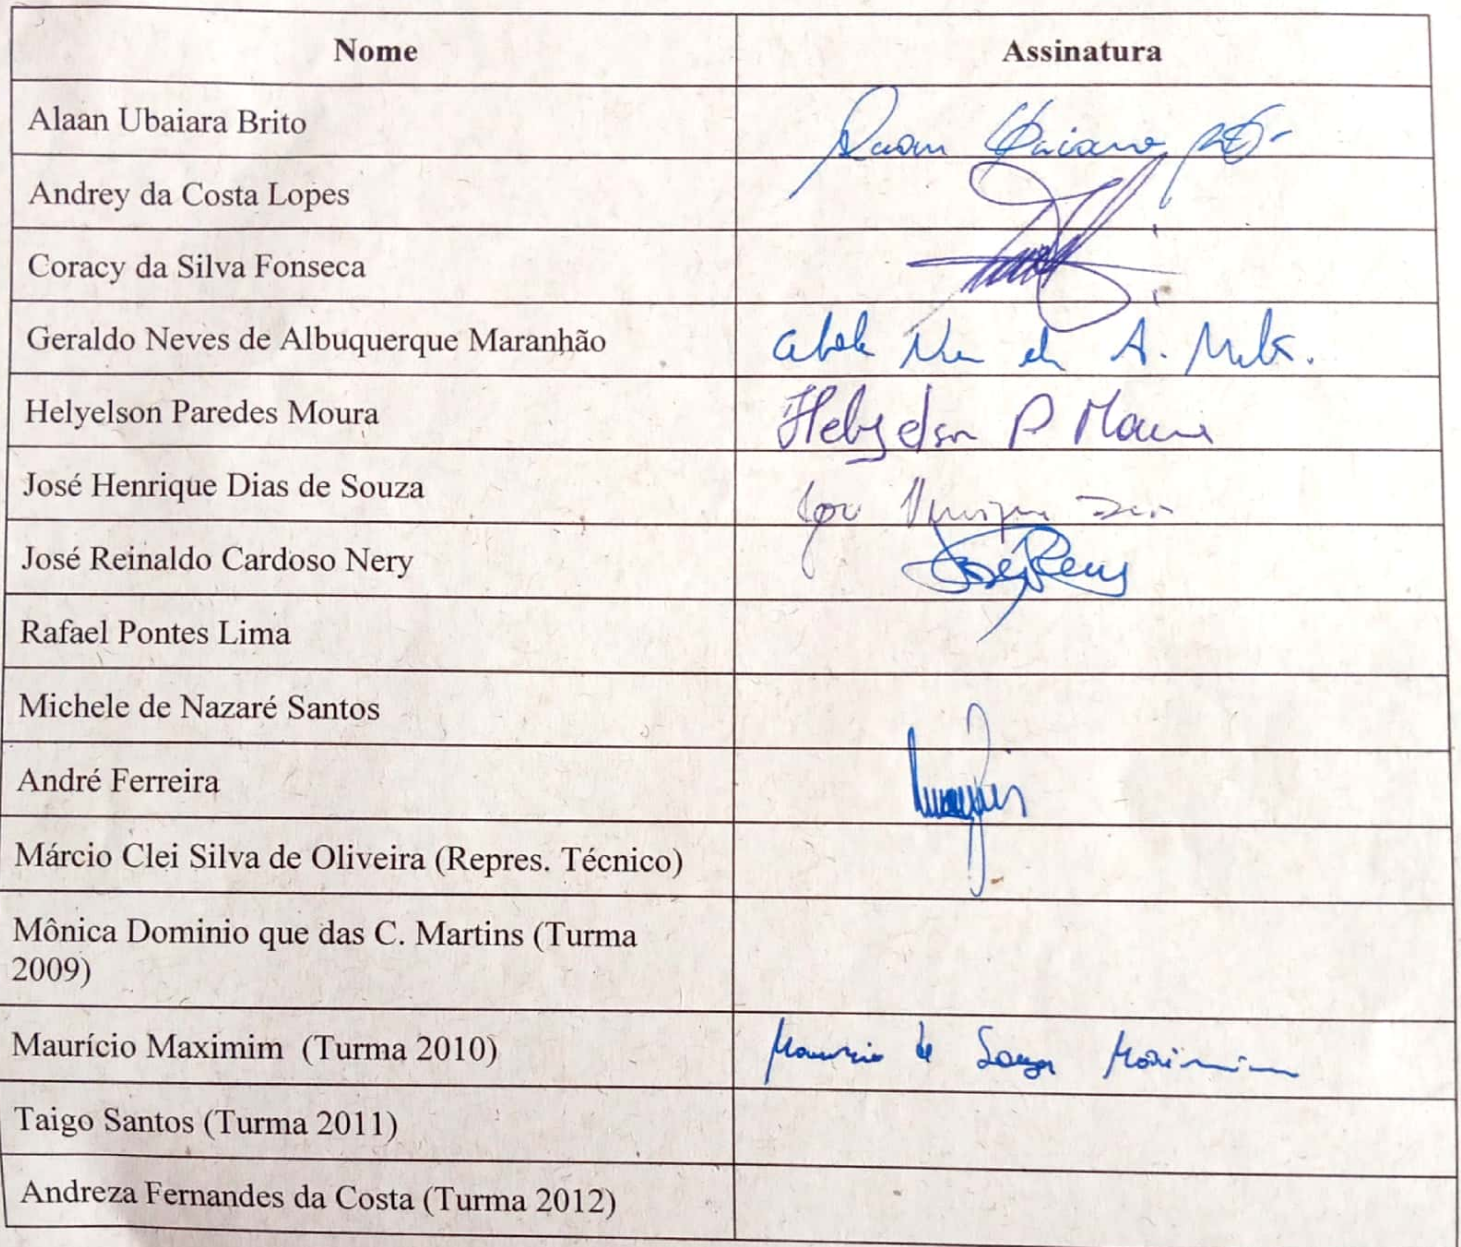 Nome Assinatura
Alaan Ubaiara Brito
Andrey da Costa Lopes
Coracy da Silva Fonseca
Geraldo Neves de Albuquerque Maranhão
Helyelson Paredes Moura Helyelson P Moura
José Henrique Dias de Souza
José Reinaldo Cardoso Nery
Rafael Pontes Lima
Michele de Nazaré Santos
André Ferreira
Márcio Clei Silva de Oliveira (Repres. Técnico)
Mônica Dominio que das C. Martins (Turma
2009)
Maurício Maximim (Turma 2010) Mauricio de Souza Maximim
Taigo Santos (Turma 2011)
Andreza Fernandes da Costa (Turma 2012)